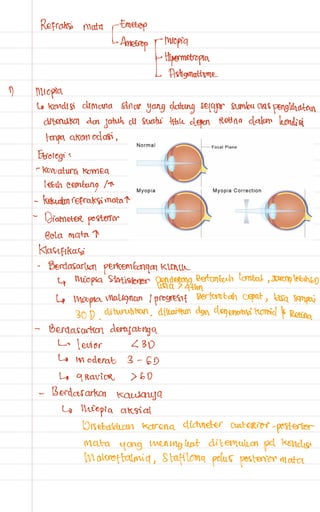 Refraksi mata Emetrop
Ametrop Miopia
Hipermetropia
Astigmatisme
1) Miopia
↳ kondisi dimana sinar yang datang sejajar sumbu axis penglihatan
diteruskan dan jatuh di suatu titik depan retina dalam kondisi
tanpa akomodasi,
Etiologi :
- kurvatura kornea
lebih cembung /↑
- kekuatan refraksi mata ↑
- Diameter posterior
Bola mata ↑
Normal
Focal Plane
Myopia
Myopia Correction
Klasifikasi
- Berdasarkan perkembangan klinik
↳ miopia stasioner cenderung bertambah lambat, jarang lebih 6D
↳ miopia malignan / progresif bertambah cepat, bisa sampai
30 D. diturunkan, dikaitkan dgn degenerasi koroid & Retina
- Berdasarkan derajatnya
↳ levior < 3D
↳ moderat 3 - 6D
↳ gravior > 6D
- Berdasarkan
↳ Miopia aksial
Disebabkan karena diameter anterior-posterior
mata yang meningkat ditemukan pd kondisi
Makroftalmia, Stafiloma polus posterior mata